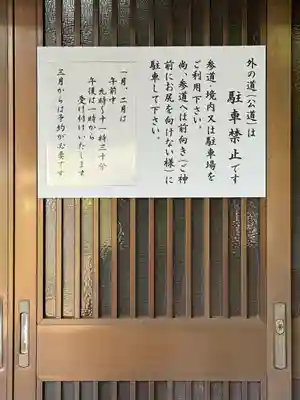 外の道(公道)は
駐車禁止です
参道、境内又は駐車場を
ご利用下さい。
尚、参道へは前向き(ご神
前にお尻を向けない様)に
駐車して下さい。
一月、二月は
午前中
九時〜十一時三十分
午後は一時から
受け付けいたします
三月からは予約が必要です